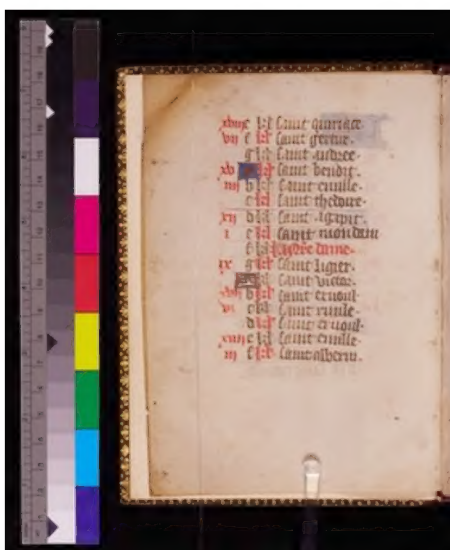 xviii e kl saint quiriace.
vii f kl saint gertrue.
g kl saint andree.
xv A kl saint benoit.
iiii b kl saint emille.
c kl saint thedoire.
xii d kl saint agapit.
i e kl saint
f kl nostre dame.
ix g kl saint ligier.
A kl saint victor.
xvii b kl saint ernoul.
vi c kl saint rutile.
d kl saint ernoul.
xiiii e kl saint emille.
iii f kl saint